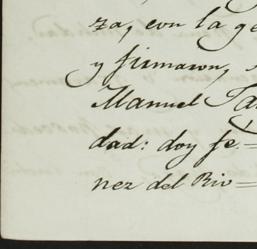 za, con la ge
y firmaron,
Manuel
dad: doy fe=
nez del Rio=